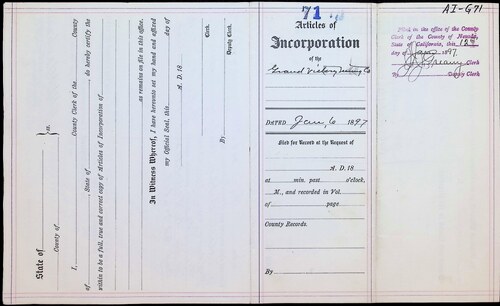 State of
ss.
County of
I, County Clerk of the County
of , State of , do hereby certify the
within to be a full, true and correct copy of Articles of Incorporation of
as remains on file in this office.
In Witness Whereof, I have hereunto set my hand and affixed
my Official Seal, this day of
A. D. 18
Clerk.
By
Deputy Clerk.
71
Articles of
Incorporation
of the
Grand Victory Mining Co
DATED Jan, 6 1897
Filed for Record at the Request of
A. D. 18
at min. past o'clock,
M., and recorded in Vol.
of page
County Records.
By
AI-G71
Filed in the office of the County
Clerk of the County of Nevada,
State of California, this 18th
day of Jan 1897.
Clerk
By Deputy Clerk